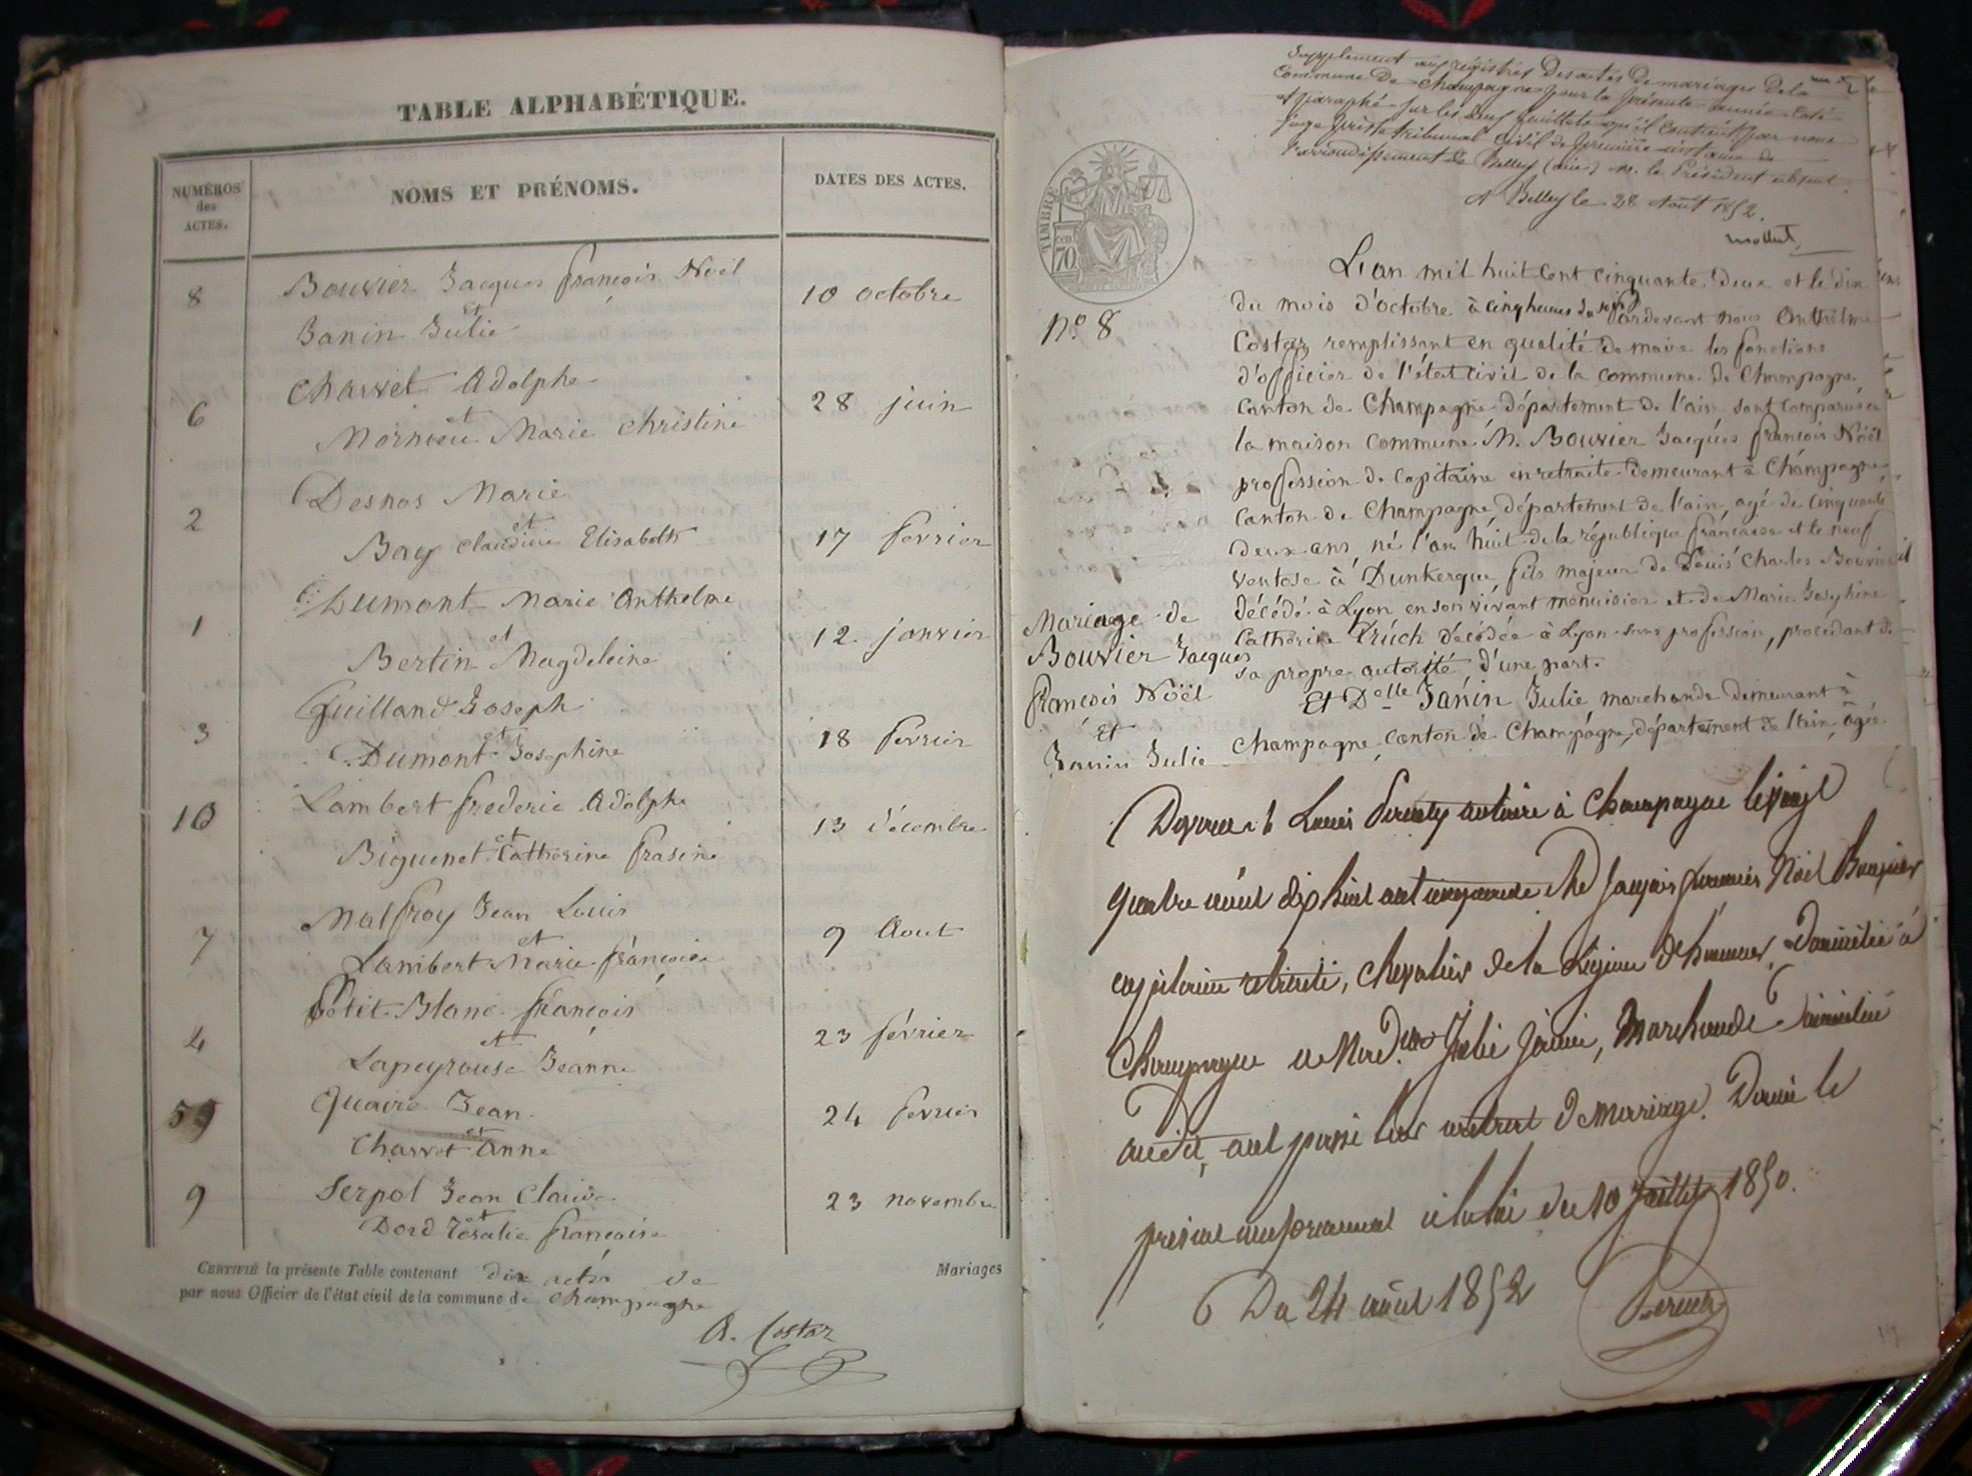 TABLE ALPHABÉTIQUE.
NUMÉROS des ACTES.
NOMS ET PRÉNOMS.
DATES DES ACTES.
8 Bouvier Jacques françois Noël
et
Janin Julie
10 octobre
6 Charvet Adolphe
et
Mornieu Marie Christine
28 juin
2 Desnos Marie
et
Bay Claudine Elisabeth
17 fevrier
1 Dumont Marie Anthelme
et
Bertin Magdeleine
12 janvier
3 Guilland Joseph
et
Dumont Josephine
18 fevrier
10 Lambert frederic Adolphe
et
Biguenet Catherine
13 décembre
7 Malfroy Jean Louis
et
Lambert Marie françoise
9 Aout
4 Petit-Blanc françois
et
Lapeyrouse Jeanne
23 février
5 Quaire Jean
et
Charvet Anne
24 fevrier
9 Serpol Jean Claude
et
Dord Rosalie françoise
23 novembre
CERTIFIÉ la présente Table contenant dix actes de Mariages
par nous Officier de l'état civil de la commune de Champagne
A. Costaz
Supplement aux registres des actes de mariages de la
Commune de Champagne pour la présente année coté
et paraphé sur les deux feuillets qu'il contient par nous
juge près le tribunal civil de première instance de
l'arrondissement de Belley (ain) Mr. le Président absent.
A Belley le 28 Août 1852.
Mollet
TIMBRE
70
L'an mil huit cent cinquante deux et le dix
du mois d'octobre à cinq heures du soir pardevant nous Anthelme
Nº 8
Costaz remplissant en qualité de maire les fonctions
d'officier de l'état civil de la commune de Champagne
canton de Champagne département de l'ain sont comparus en
la maison commune M. Bouvier Jacques françois Noël
profession de capitaine en retraite demeurant à Champagne,
canton de Champagne, département de l'ain, agé de cinquante
deux ans, né l'an huit de la république française et le neuf
ventose à Dunkerque, fils majeur de Louis Charles Bouvier
décédé à Lyon en son vivant menuisier et de Marie Josephine
Catherine Truch décédée à Lyon sans profession, procédant de
sa propre autorité, d'une part.
Mariage de
Bouvier Jacques
françois Noël
et
Janin Julie
Et Delle Janin Julie marchande demeurant à
Champagne, canton de Champagne, département de l'Ain, âgée
Devant Louis notaire à Champagne le vingt
quatre août dix huit cent cinquante Jacques françois Noël Bouvier
capitaine retraité, chevalier de la Légion d'honneur, domicilié à
Champagne et Julie Janin, Marchande domiciliée
audit, ont passé leur contrat de mariage. Donné le
présent conformément à la loi du 10 Juillet 1850.
Du 24 août 1852